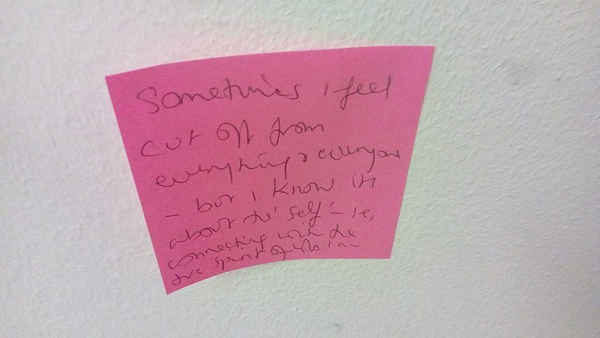 Sometimes I feel
cut off from
everything & everyone
- but I know it's
about the 'self' - i.e,
connecting with the
true spirit of who I am